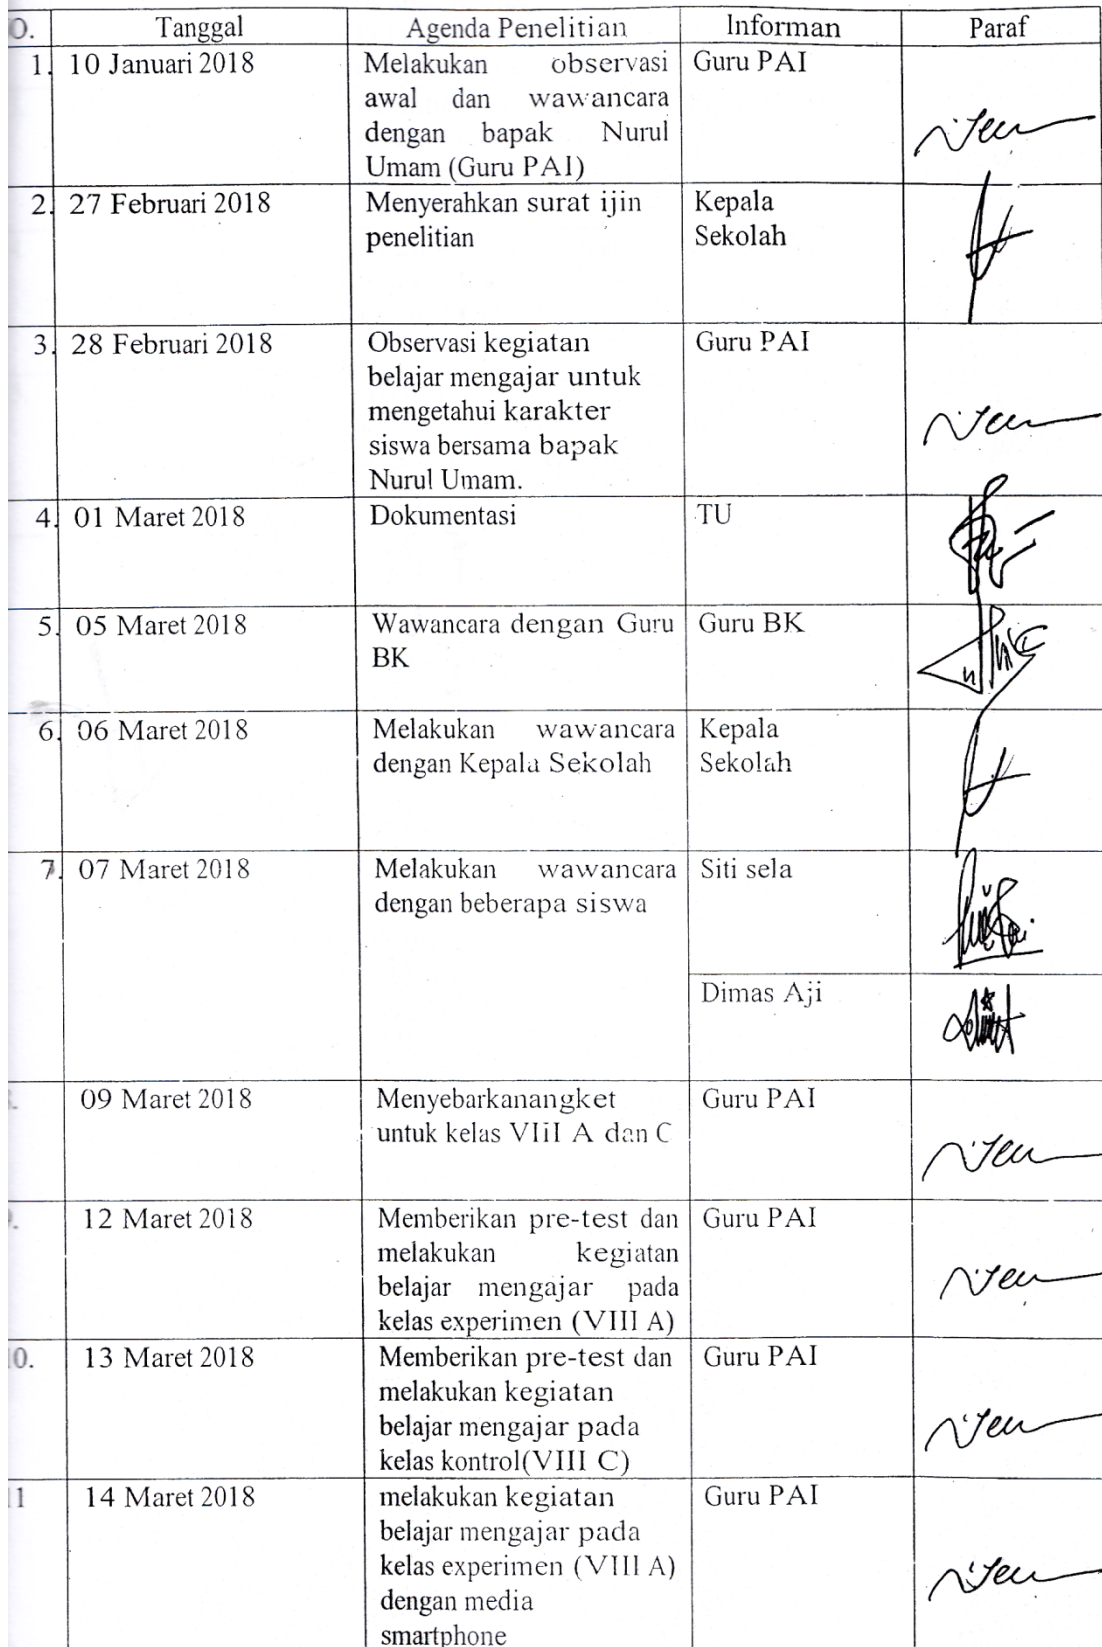 O. Tanggal Agenda Penelitian Informan Paraf
1. 10 Januari 2018 Melakukan observasi Guru PAI
awal dan wawancara
dengan bapak Nurul
Umam (Guru PAI)
2. 27 Februari 2018 Menyerahkan surat ijin Kepala
penelitian Sekolah
3. 28 Februari 2018 Observasi kegiatan Guru PAI
belajar mengajar untuk
mengetahui karakter
siswa bersama bapak
Nurul Umam.
4. 01 Maret 2018 Dokumentasi TU
5. 05 Maret 2018 Wawancara dengan Guru Guru BK
BK
6. 06 Maret 2018 Melakukan wawancara Kepala
dengan Kepala Sekolah Sekolah
7. 07 Maret 2018 Melakukan wawancara Siti sela
dengan beberapa siswa
Dimas Aji
09 Maret 2018 Menyebarkanangket Guru PAI
untuk kelas VIII A dan C
12 Maret 2018 Memberikan pre-test dan Guru PAI
melakukan kegiatan
belajar mengajar pada
kelas experimen (VIII A)
0. 13 Maret 2018 Memberikan pre-test dan Guru PAI
melakukan kegiatan
belajar mengajar pada
kelas kontrol(VIII C)
11 14 Maret 2018 melakukan kegiatan Guru PAI
belajar mengajar pada
kelas experimen (VIII A)
dengan media
smartphone